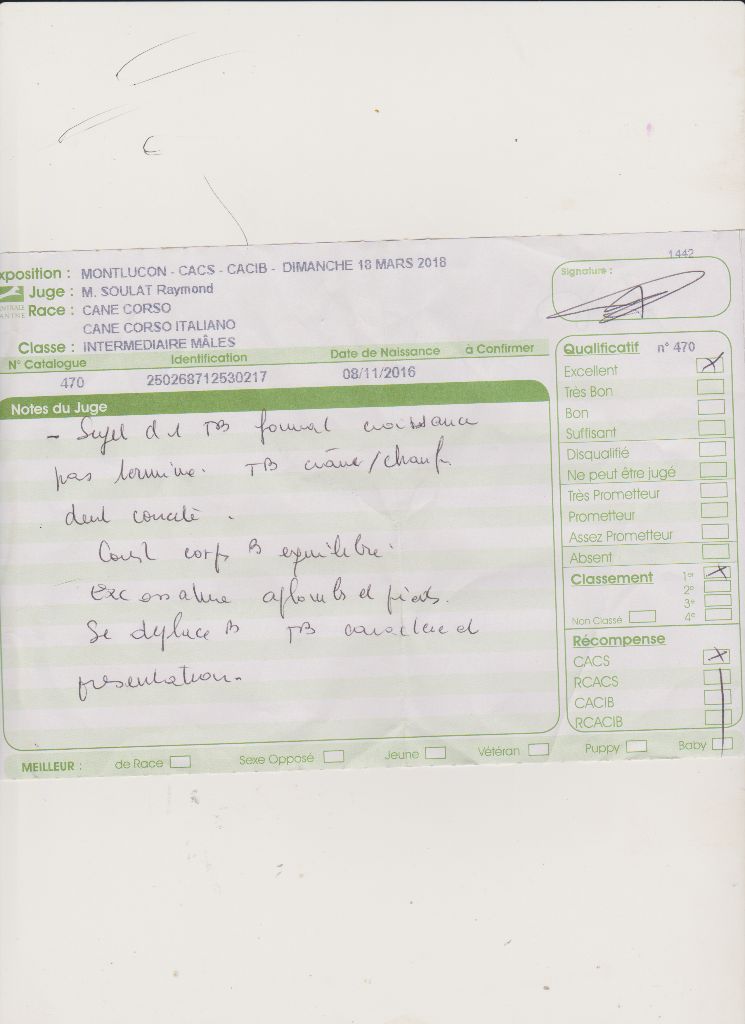 1442
xposition : MONTLUCON - CACS - CACIB - DIMANCHE 18 MARS 2018
Juge : M. SOULAT Raymond
Race : CANE CORSO
CANE CORSO ITALIANO
Classe : INTERMEDIAIRE MÂLES
Signature :
N° Catalogue Identification Date de Naissance à Confirmer
470 250268712530217 08/11/2016
Notes du Juge
- Sujet d 1 TB format croissance
pas terminé. TB crâne/chanf.
dent
Const corps B équilibré.
Exc ossature aplombs et pieds.
Se déplace B TB caractère et
présentation.
Qualificatif n° 470
Excellent
Très Bon
Bon
Suffisant
Disqualifié
Ne peut être jugé
Très Prometteur
Prometteur
Assez Prometteur
Absent
Classement 1er
2e
3e
Non Classé 4e
Récompense
CACS
RCACS
CACIB
RCACIB
MEILLEUR : de Race Sexe Opposé Jeune Vétéran Puppy Baby